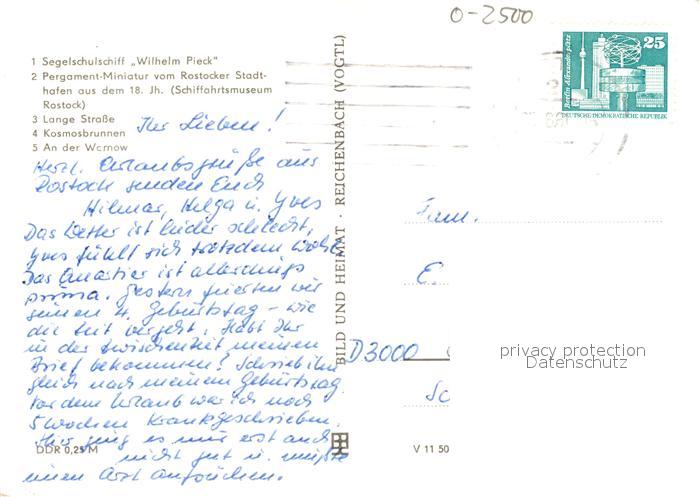 O-2500
1 Segelschulschiff „Wilhelm Pieck"
2 Pergament-Miniatur vom Rostocker Stadt-
hafen aus dem 18. Jh. (Schiffahrtsmuseum
Rostock)
3 Lange Straße
4 Kosmosbrunnen
5 An der Warnow
Ihr Lieben!
Herzl. Urlaubsgrüße aus
Rostock senden Euch
Hilmar, Helga u. Yves
Das Wetter ist leider schlecht,
Yves fühlt sich trotzdem wohl.
Das Quartier ist allerdings
prima. Gestern feierten wir
seinen 4. Geburtstag – wie
die Zeit vergeht. Habt Ihr
in der Zwischenzeit meinen
Brief bekommen? Schrieb ihn
gleich nach meinem Geburtstag.
Vor dem Urlaub war ich noch
5 Wochen krankgeschrieben.
Hier ging es mir erst auch
nicht gut u. mußte
einen Arzt aufsuchen.
DDR 0,25 M
BILD UND HEIMAT · REICHENBACH (VOGTL)
V 11 50
25
Berlin, Alexanderplatz
DEUTSCHE DEMOKRATISCHE REPUBLIK
Fam.
E.
D3000
Sc
privacy protection
Datenschutz